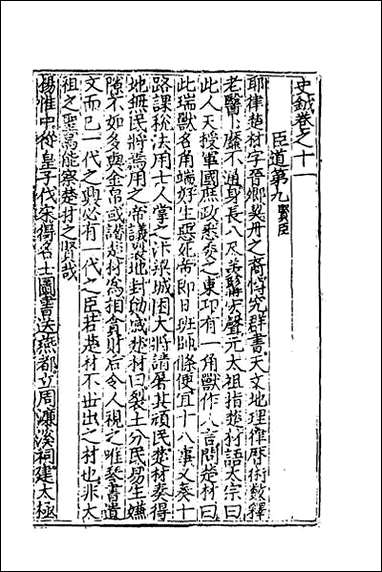 史鉞卷之十一
臣道第九 賢臣
耶律楚材字晉卿契丹之裔博究群書天文地理律曆術數釋
老醫卜靡不通身長八尺美髯宏聲元太祖指楚材語太宗曰
此人天授軍國庶政悉委之東印有一角獸作人言問楚材曰
此瑞獸名角端好生惡死帝即日班師條便宜十八事又奏十
路課稅法用士人掌之汴梁城困大將請屠其頑民楚材奏得
地無民將焉用之帝議裂地封勳戚楚材曰裂土分民易生嫌
隙不如多與金帛或譖楚材為相貪財后令人視之唯琴書遺
文而已一代之興必有一代之臣若楚材不世出之材也非大
祖之聖焉能察楚材之賢哉
楊惟中從皇子代宋得名士圖書送燕都立周濂溪祠建太極